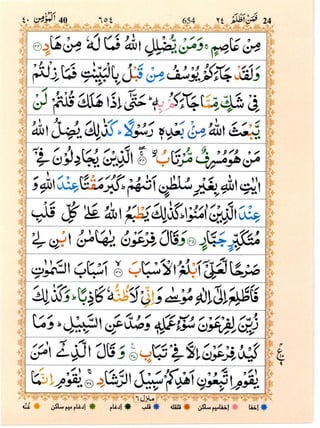 ٤٠ المؤمن 40 ٦٥٤ 654 فمن اظلم ٢٤ 24
مِنْ عَاصِمٍ ۚ وَمَنْ يُّضْلِلِ اللّٰهُ فَمَا لَهٗ مِنْ هَادٍ ﴿۳۳﴾
وَلَقَدْ جَآءَكُمْ يُوْسُفُ مِنْ قَبْلُ بِالْبَيِّنٰتِ فَمَا زِلْتُمْ
فِيْ شَكٍّ مِّمَّا جَآءَكُمْ بِهٖ ؕ حَتّٰۤى اِذَا هَلَكَ قُلْتُمْ لَنْ
يَّبْعَثَ اللّٰهُ مِنْۢ بَعْدِهٖ رَسُوْلًا ؕ كَذٰلِكَ يُضِلُّ اللّٰهُ
مَنْ هُوَ مُسْرِفٌ مُّرْتَابُ ﴿۳۴﴾ الَّذِيْنَ يُجَادِلُوْنَ فِيْۤ
اٰيٰتِ اللّٰهِ بِغَيْرِ سُلْطٰنٍ اَتٰىهُمْ ؕ كَبُرَ مَقْتًا عِنْدَ اللّٰهِ وَ
عِنْدَ الَّذِيْنَ اٰمَنُوْا ؕ كَذٰلِكَ يَطْبَعُ اللّٰهُ عَلٰى كُلِّ قَلْبِ
مُتَكَبِّرٍ جَبَّارٍ ﴿۳۵﴾ وَقَالَ فِرْعَوْنُ يٰهَامٰنُ ابْنِ لِيْ
صَرْحًا لَّعَلِّيْۤ اَبْلُغُ الْاَسْبَابَ ﴿۳۶﴾ اَسْبَابَ السَّمٰوٰتِ
فَاَطَّلِعَ اِلٰۤى اِلٰهِ مُوْسٰى وَاِنِّيْ لَاَظُنُّهٗ كَاذِبًا ؕ وَكَذٰلِكَ
زُيِّنَ لِفِرْعَوْنَ سُوْٓءُ عَمَلِهٖ وَصُدَّ عَنِ السَّبِيْلِ ؕ وَمَا
كَيْدُ فِرْعَوْنَ اِلَّا فِيْ تَبَابٍ ﴿۳۷﴾ وَقَالَ الَّذِيْۤ اٰمَنَ
يٰقَوْمِ اتَّبِعُوْنِ اَهْدِكُمْ سَبِيْلَ الرَّشَادِ ﴿۳۸﴾ يٰقَوْمِ اِنَّمَا
منزل ٦
اخفا اخفا میم ساکن قلقله قلب ادغام ادغام میم ساکن غنه